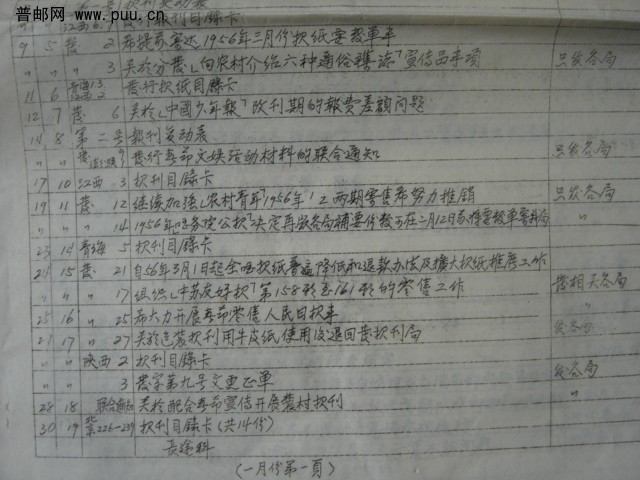 普邮网 www.puu.cn
江西 6. 9 报刊目录卡
9 5 发 2 希提前寄达1956年三月份报纸要数单
〃 〃 〃 3 关於分发「向农村介绍六种通俗杂志」宣传品事项 只发各局
11 6 青海13 江西2 发行报纸目录卡
12 7 发 6 关於「中國少年報」改刊期的報费差额问题
14 8 第二号報刊变动表
〃 〃 发行春节文娱活动材料的联合通知 只发各局
17 10 江西 3 报刊目录卡
19 11 发 12 继续加强「农村青年」1956年1.2两期零售希努力推销 只发各局
〃 〃 〃 14 1956年国务院公报 〃
23 14 青海 5 报刊目录卡
24 15 发 21 自56年3月1日起全国报纸普遍降低和退款办法及擴大报纸推广工作
〃 〃 〃 17 组织「中苏友好报」第158期至161期的零售工作 发相关各局
25 16 〃 25 希大力开展春节零售人民日报 〃
27 17 〃 27 关於包装报刊用牛皮纸使用后退回发报刊局 发各局
〃 〃 陕西 2 报刊目录卡
〃 〃 3 发字第九号文更正单 发各局
28 18 联合通知 关於配合春节宣传开展農村报刊 〃
30 19 北京226-239 报刊目录卡(共14份)
长途科
(一月份第一頁)